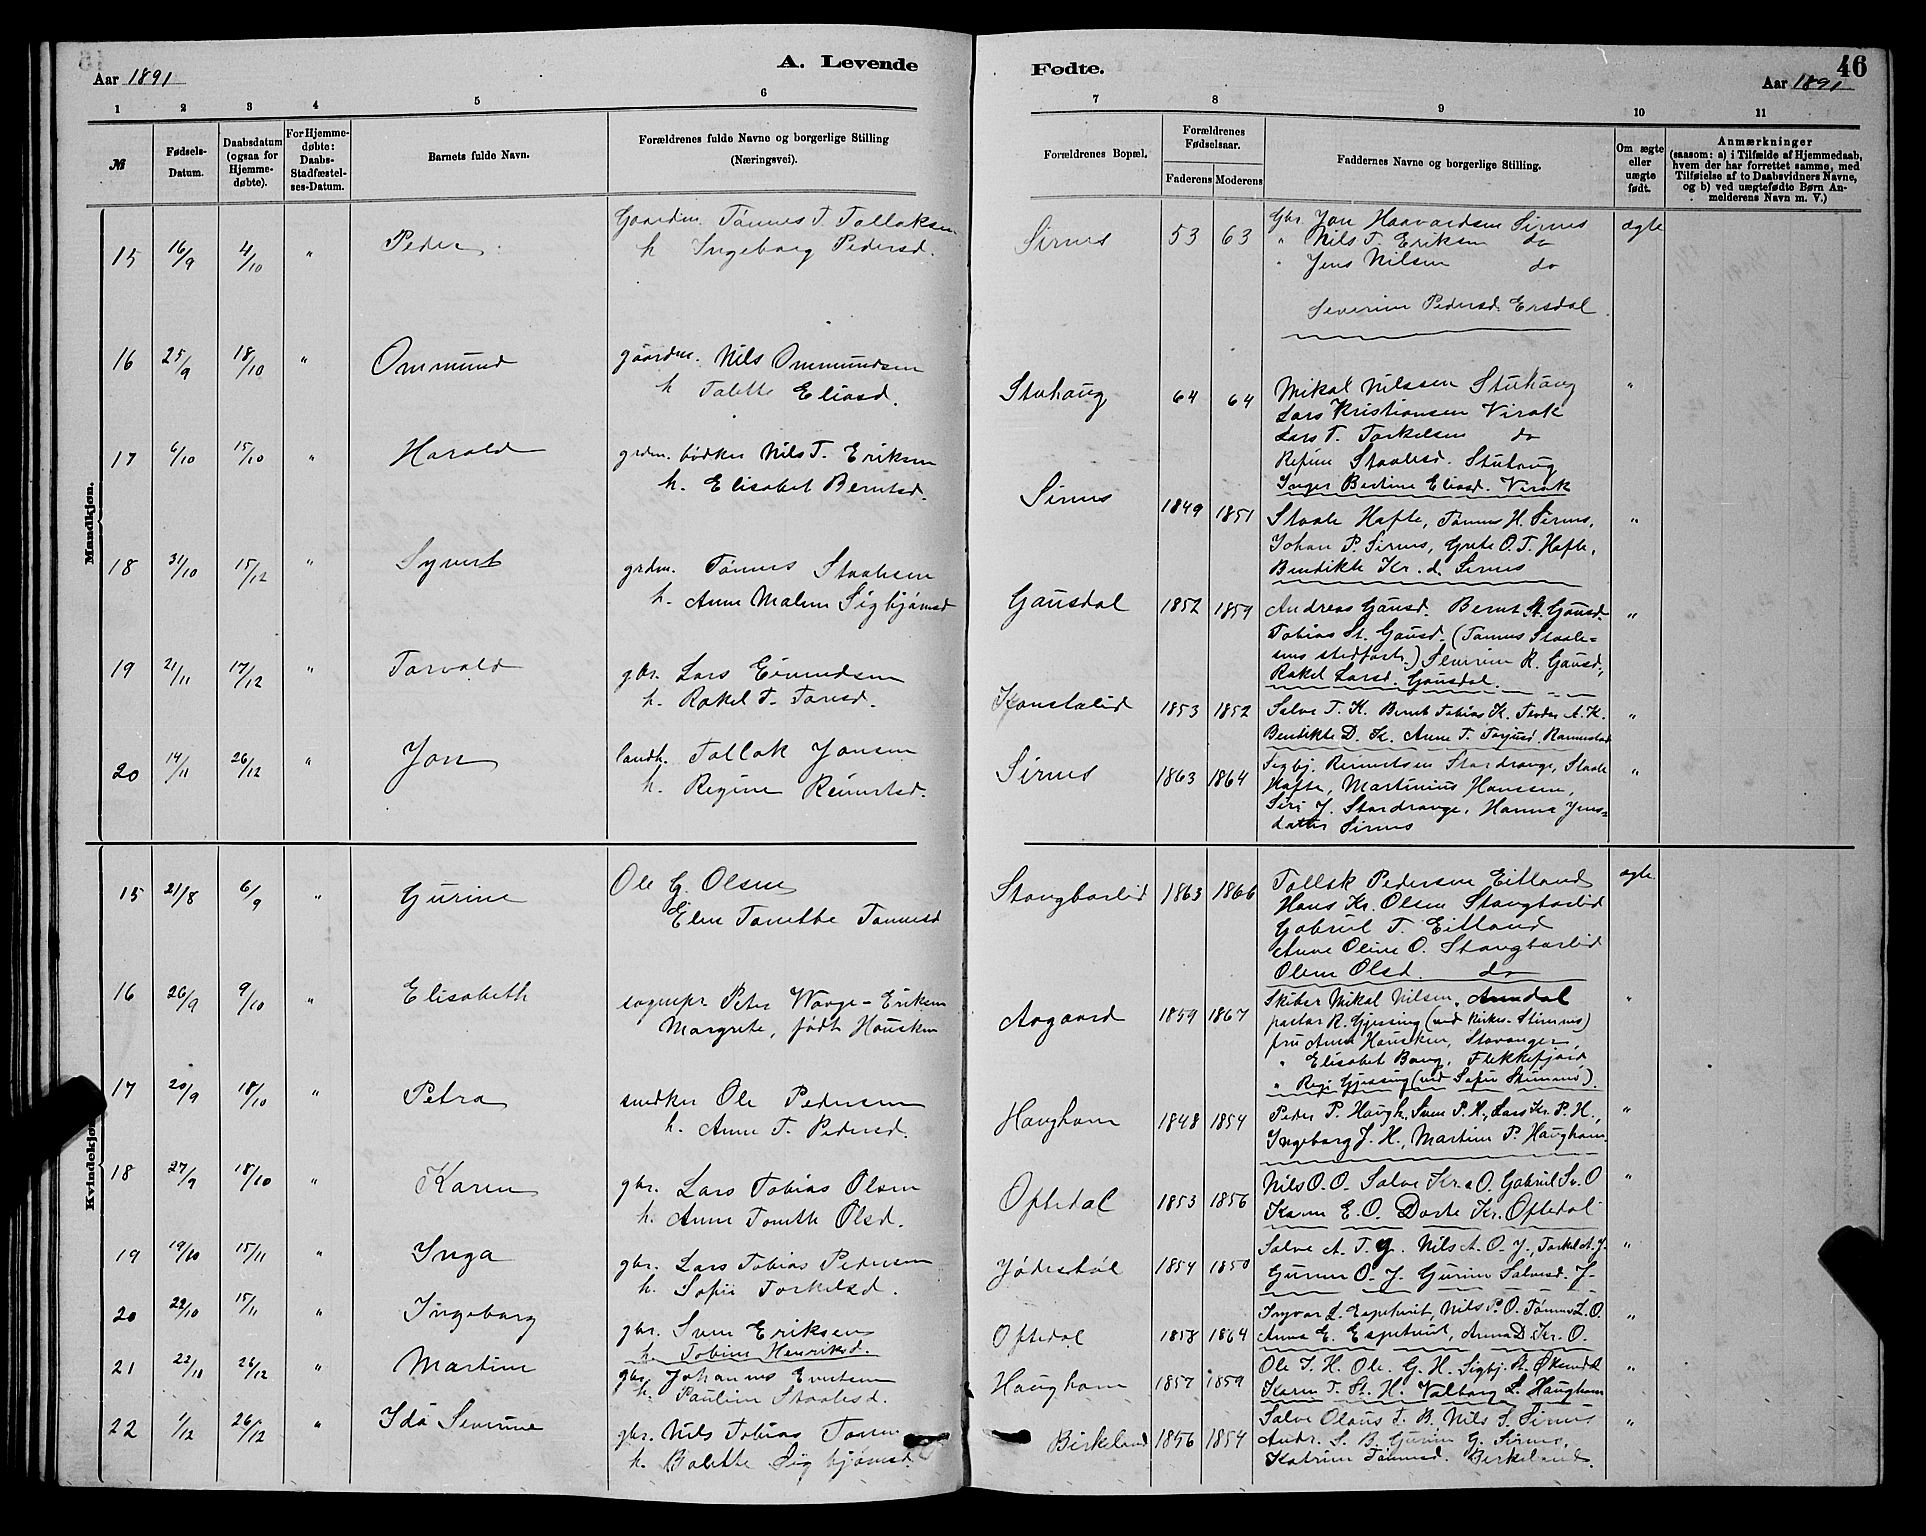 Aar 1891
A. Levende
Fødte.
46
Aar 1891
1 2 3 4 5 6 7 8 9 10 11
№
Fødsels-Datum.
Daabsdatum (ogsaa for Hjemmedøbte).
For Hjemmedøbte: Daabs-Stadfæstelses-Datum.
Barnets fulde Navn.
Forældrenes fulde Navne og borgerlige Stilling (Næringsvei).
Forældrenes Bopæl.
Forældrenes Fødselsaar.
Faderens Moderens
Faddernes Navne og borgerlige Stilling.
Om ægte eller uægte født.
Anmærkninger
(saasom: a) i Tilfælde af Hjemmedaab, hvem der har forrettet samme, med Tilføielse af to Daabsvidners Navne, og b) ved uægtefødte Børn Anmelderens Navn m. V.)
Mandkjøn.
15 16/9 4/10 " Peder
Gaardm. Tønnes T. Tollaksen
h Ingeborg Pedersd.
Sirnes 53 63
Gbr. Jon Haavardsen Sirnes
" Nils T. Eriksen do
" Jens Nilsen do
Severine Pedersd. Ersdal
ægte
16 25/9 18/10 " Ommund
gaardm. Nils Ommundsen
h Talette Eliasd.
Stuhaug 64 64
Mikal Nilssen Stuhaug
Lars Kristiansen Virak
Lars T. Torkelsen do
Refine Staalesd. Stuhaug
Inger Bertine Eliasd. Virak
"
17 6/10 15/10 " Harald
grdm. bødker Nils T. Eriksen
h. Elisabet Berntsd.
Sirnes 1849 1851
Staale Hafte, Tønnes H. Sirnes,
Johan P. Sirnes, Grete O. T. Hafte,
Bendikte Kr. d. Sirnes
"
18 31/10 15/12 " Syvert
grdm. Tønnes Staalesen
h. Anne Malene Sigbjørnsd
Gausdal 1852 1859
Andreas Gausd. Bernt St. Gausd.
Tobias St. Gausd. (Tønnes Staale-
sens stedfortr.) Severine R. Gausd,
Rakel Larsd. Gausdal.
"
19 21/11 17/12 " Torvald
gbr. Lars Eivindsen
h. Rakel T. Tarsd.
Konstalid 1853 1852
Salve T. K. Bernt Tobias K. Teodor A. K.
Bendikte D. K. Anne T. Torjusd. Rannestad
"
20 14/11 26/12 " Jon
landh. Tollak Jonsen
h. Regine Reinertsd.
Sirnes 1863 1864
Sigbj. Reinertsen Stordrange, Staale
Hafte, Martinius Hanssen,
Siri J. Stordrange, Hanna Jens-
datter Sirnes
"
Kvindekjøn.
15 21/8 6/9 " Gurine
Ole G. Olsen
Elen Tonette Tønnesd
Stangborlid 1863 1866
Tollak Pedersen Eitland
Hans Kr. Olsen Stangborlid
Gabriel T. Eitland
Anne Oline O. Stangborlid
Olene Olsd. do
ægte
16 26/9 9/10 " Elisabeth
sognepr Peter Waage-Eriksen
Margrete, født Hausken
Aagaard 1859 1867
Skiber Mikal Nilsen, Arendal
pastor R. Gjessing (ved kirkes. Stimnes)
fru Anna Hausken, Stavanger,
" Elisabet Bang, Flekkefjord
" Regi Gjessing (ved Sofie Stimnes).
"
17 20/9 18/10 " Petra
snedker Ole Pedersen
h. Anne T. Pedersd.
Haugham 1848 1854
Peder P. Haugh. Sven P. H, Lars Kr. P. H.,
Ingeborg J. H., Martine P. Haugham
"
18 27/9 18/10 " Karen
gbr. Lars Tobias Olsen
h. Anne Tonette Olsd.
Oftedal 1853 1856
Nils O. O. Salve Kr. O. Gabriel Sv. O
Karen E. O. Dorte Kr. Oftedal
"
19 19/10 15/11 " Inga
gbr. Lars Tobias Pedersen
h. Sofie Torkelsd.
Jødestøl 1854 1850
Salve A. T. J. Nils A. O. J., Torkel A. J.
Gurine O. J. Gurine Salvesd. J.
"
20 22/10 15/11 " Ingeborg
gbr. Sven Eriksen
h. Tobine Henriksd.
Oftedal 1858 1864
Ingvar L. Espetveit, Nils P. O. Tønnes L. O.
Anna E. Espetveit, Anna D. Kr. O.
"
21 22/11 26/12 " Martine
gbr. Johannes Evertsen
h. Pauline Staalesd.
Haugham 1857 1859
Ole J. H. Ole G. H. Sigbj. St.
Karen T. St. H. Valborg L. Haugham
"
22 1/12 26/12 " Ida Severine
gbr. Nils Tobias
h. Bolette Sigbjørnsd.
Birkeland 1856 1854
Salve Olaus T. B. Nils S. Sirnes
Andr. S. B. Gurine G. Sirnes,
Katrine Tønnesd. Birkeland.
"